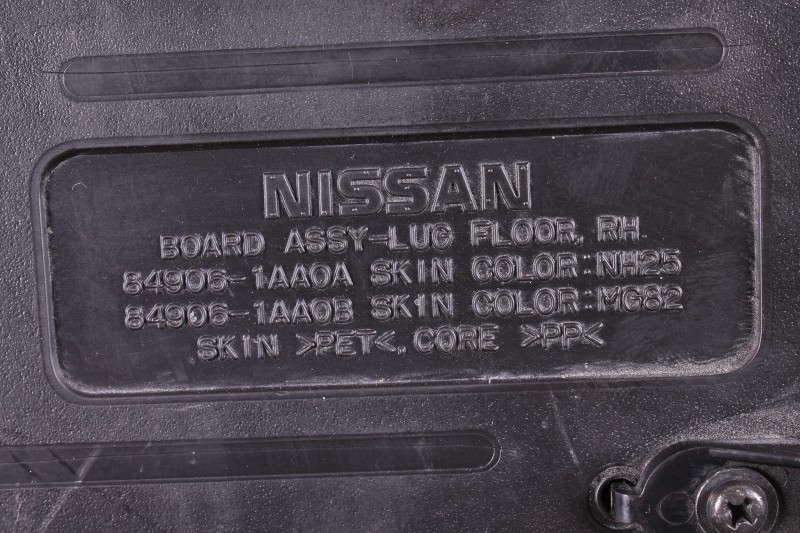 NISSAN
BOARD ASSY-LUG FLOOR, RH
84906-1AA0A SKIN COLOR:NH25
84906-1AA0B SKIN COLOR:MG82
SKIN >PET<, CORE >PP<